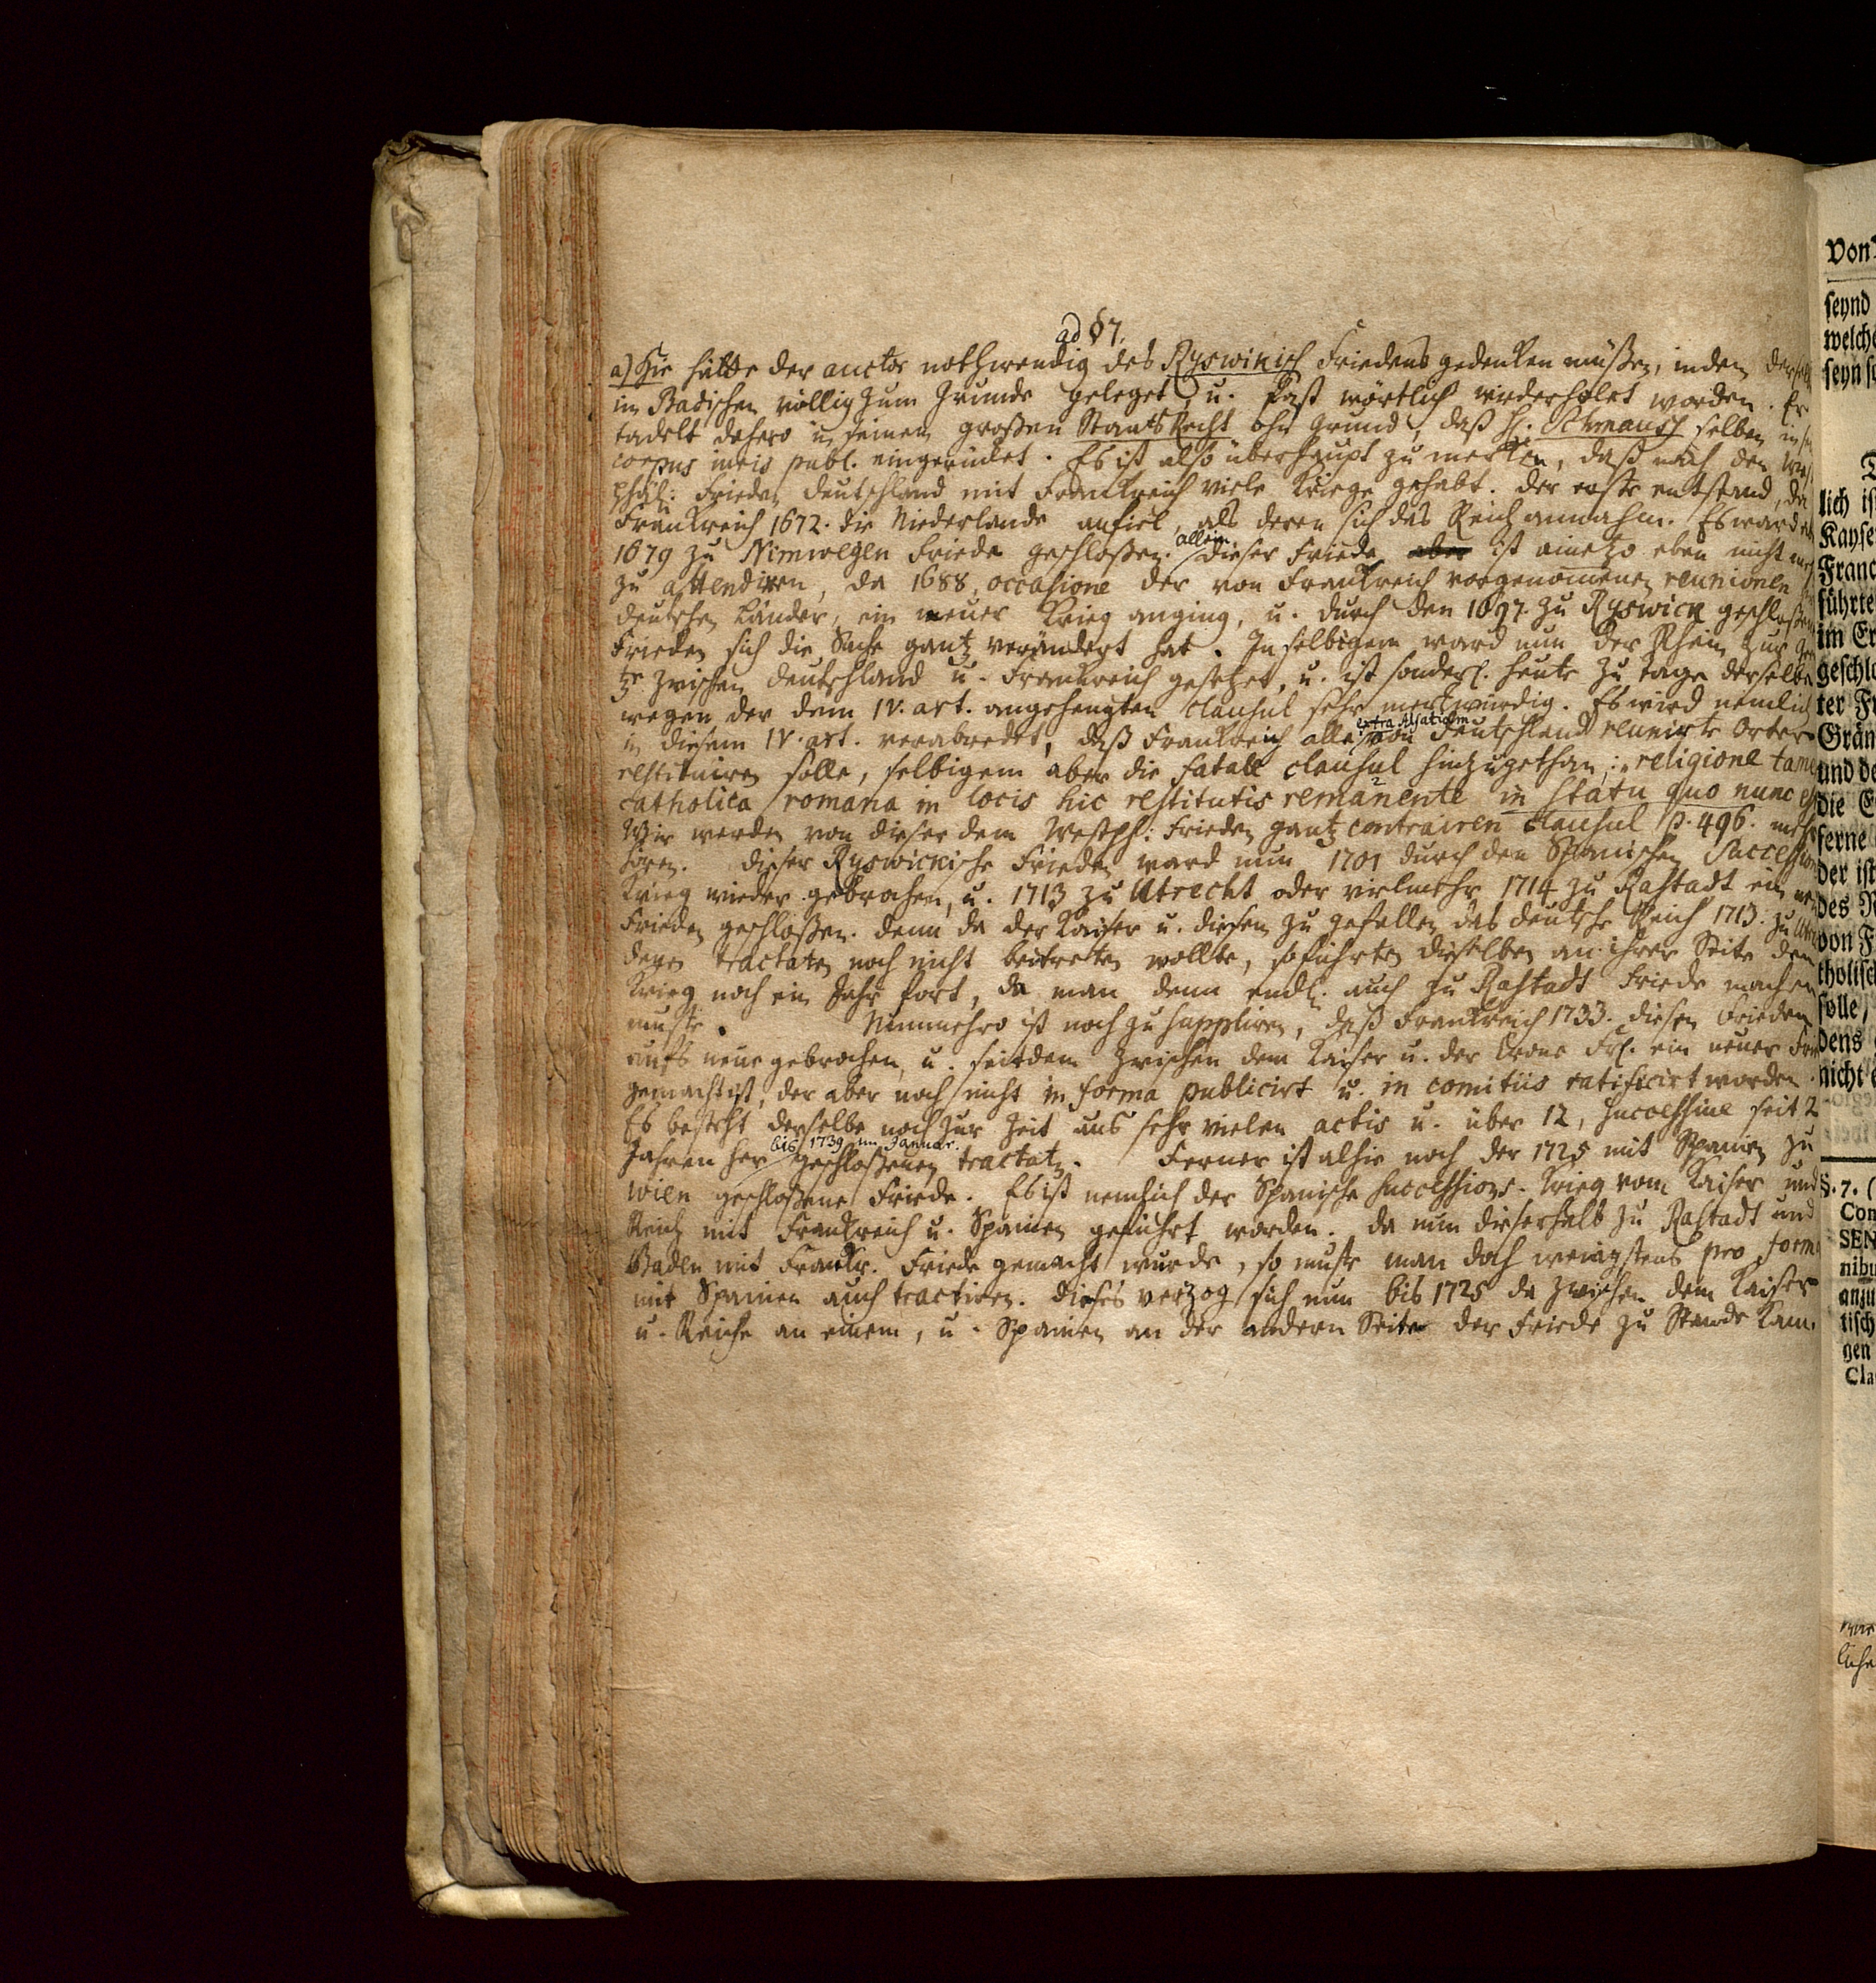 ad §7.
a) Hie hätte der auctor nothwendig des Ryswikisch Friedens gedencken müßen, indem derselb
im Badischen völlig zum Grunde geleget u. fast wörtlich wiederholet worden. Er
tadelt dahero in seinem großen StaatsRecht ohn Grund, daß H. Schmauss selben in
corpus iuris publ. eingerücket. Es ist also überhaupt zu mercken, daß nach den West
phäl: Frieden Deutschland mit Franckreich viele Kriege gehabt. Der erste entstand, da
Franckreich 1672. die Niederlande anfiel, als deren sich das Reich annahm. Es ward
1679 zu Nimwegen Friede geschloßen. allein dieser Friede aber ist anietzo eben nicht mehr
zu attendiren, da 1688, occasione der von Franckreich vorgenomenen reunionen
deutschen Länder, ein neuer Krieg anging, u. durch den 1697. zu Ryswick geschloßen
Frieden sich die Sache gantz verändert hat. In selbigem ward nun der Rhein zur Gren
tze zwischen Deutschland u. Franckreich gesetzet, u. ist sonderl. heute zu tage derselbe
wegen der dem IV. art. angehengten clausul sehr merckwürdig. Es wird nemlich
in diesem IV. art. verabredet, daß Franckreich alle extra Alsatiam von Deutschland reunirte Örter
restituiren solle, selbigem aber die fatale clausul hinzugethan: „religione tame
catholica romana in locis hic restitutis remanente in statu quo nunc est
Wir werden von dieser dem Westph: Frieden gantz contrairen clausul p. 496. mehr
hören. Dieser Ryswickische Frieden ward nun 1701 durch den Spanischen Succession
Krieg wieder gebrochen, u. 1713 zu Utrecht oder vielmehr 1714 zu Rastadt ein neu
Frieden geschloßen. Denn da der Kaiser u. diesem zu gefallen das deutsche Reich 1713. zu Utre
denen tractaten noch nicht beitretten wollte, so führten dieselben an ihrer Seite den
Krieg noch ein Jahr fort, da man denn endl. auch zu Rastadt Friede machen
muste. Nunmehro ist noch zu suppliren, daß Franckreich 1733. diesen Frieden
aufs neue gebrochen, u. seitdem zwischen dem Kaiser u. der Crone Frl. ein neuer Frie
gemacht ist, der aber noch nicht in forma publicirt u. in comitiis ratificirt worden.
Es besteht derselbe noch zur Zeit aus sehr vielen actis u. über 12, successive seit 2
Jahren her bis 1739 im Januar. geschloßenen tractaten. Ferner ist alhie noch der 1725 mit Spanien zu
Wien geschloßene Friede. Es ist nemlich der Spanische Successions-Krieg vom Kaiser und
Reich mit Franckreich u. Spanien geführt worden. Da nun dieserhalb zu Rastadt und
Baden mit Franckr. Friede gemacht wurde, so muste man doch wenigstens pro forma
mit Spanien auch tractiren. Dieses verzog sich nun bis 1725 da zwischen dem Kaiser
u. Reiche an einem, u. Spanien an der andern Seite der Friede zu Stande kam.
Von
seynd
welche
seyn
lich is
Kayse
Franc
führte
im Er
geschlo
ter Fr
Grän
und de
die E
ferne
der ist
des R
von F
tholisch
solle,
dens
nicht
§. 7. (
Con
SEN
nibu
anzu
tisch
gen
Cla